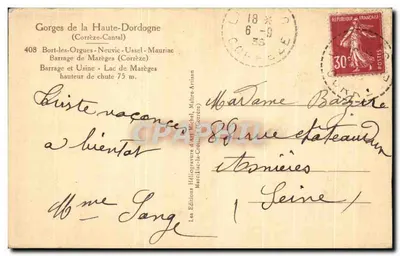 Gorges de la Haute-Dordogne
(Corrèze-Cantal)
408 Bort-les-Orgues - Neuvic - Ussel - Mauriac
Barrage de Marèges (Corrèze)
Barrage et Usine - Lac de Marèges
hauteur de chute 75 m.
18
6 - 9
35
CORREZE
REPUBLIQUE FRANÇAISE
30
Triste vacances
a bientot
Mme Sange
Les Editions Héliogravure d'Art Michel, Maître-Artisan
Madame
88 rue chateaudun
Asnières
(Seine)
CPARAMA